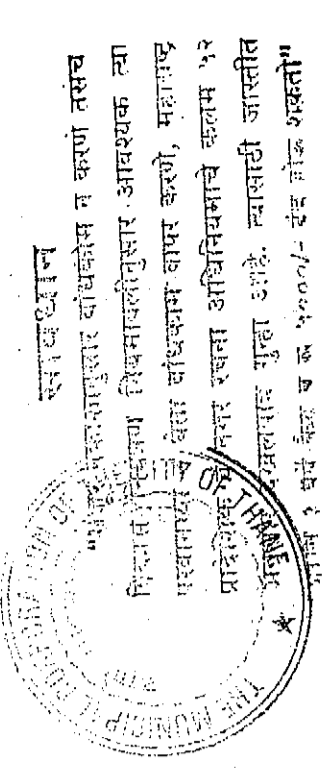 सावधान
"मंजूर नकाशानुसार बांधकाम न करणे तसेच
विकास नियंत्रण नियमावलीनुसार आवश्यक त्या
परवानग्या न घेता बांधकाम वापर करणे, महाराष्ट्र
प्रादेशिक व नगर रचना अधिनियमाचे कलम ५२
अनुसार दखलपात्र गुन्हा आहे. त्यासाठी जास्तीत
जास्त ३ वर्षे कैद व रु ५०००/- दंड होऊ शकतो"
THE MUNICIPAL CORPORATION OF THANE